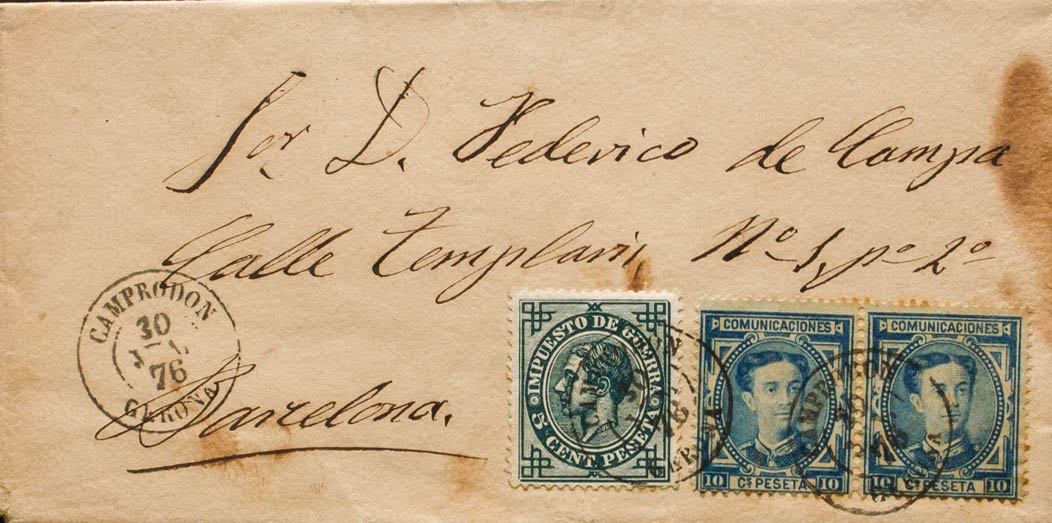 Sor D. Federico de Compa
Calle Templaris, No 1, po 2o
Barcelona.
CAMPRODON
30
76
GERONA
IMPUESTO DE GUERRA
5 CENT. PESETA
COMUNICACIONES
10 Cs PESETA 10
COMUNICACIONES
10 Cs PESETA 10
CAMPRODON
GERONA